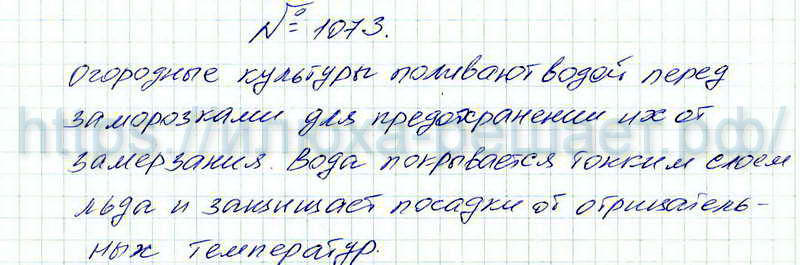 № 1073.
Огородные культуры поливают водой перед
заморозками для предохранении их от
замерзания. Вода покрывается тонким слоем
льда и защищает посадки от отрицатель-
ных температур.